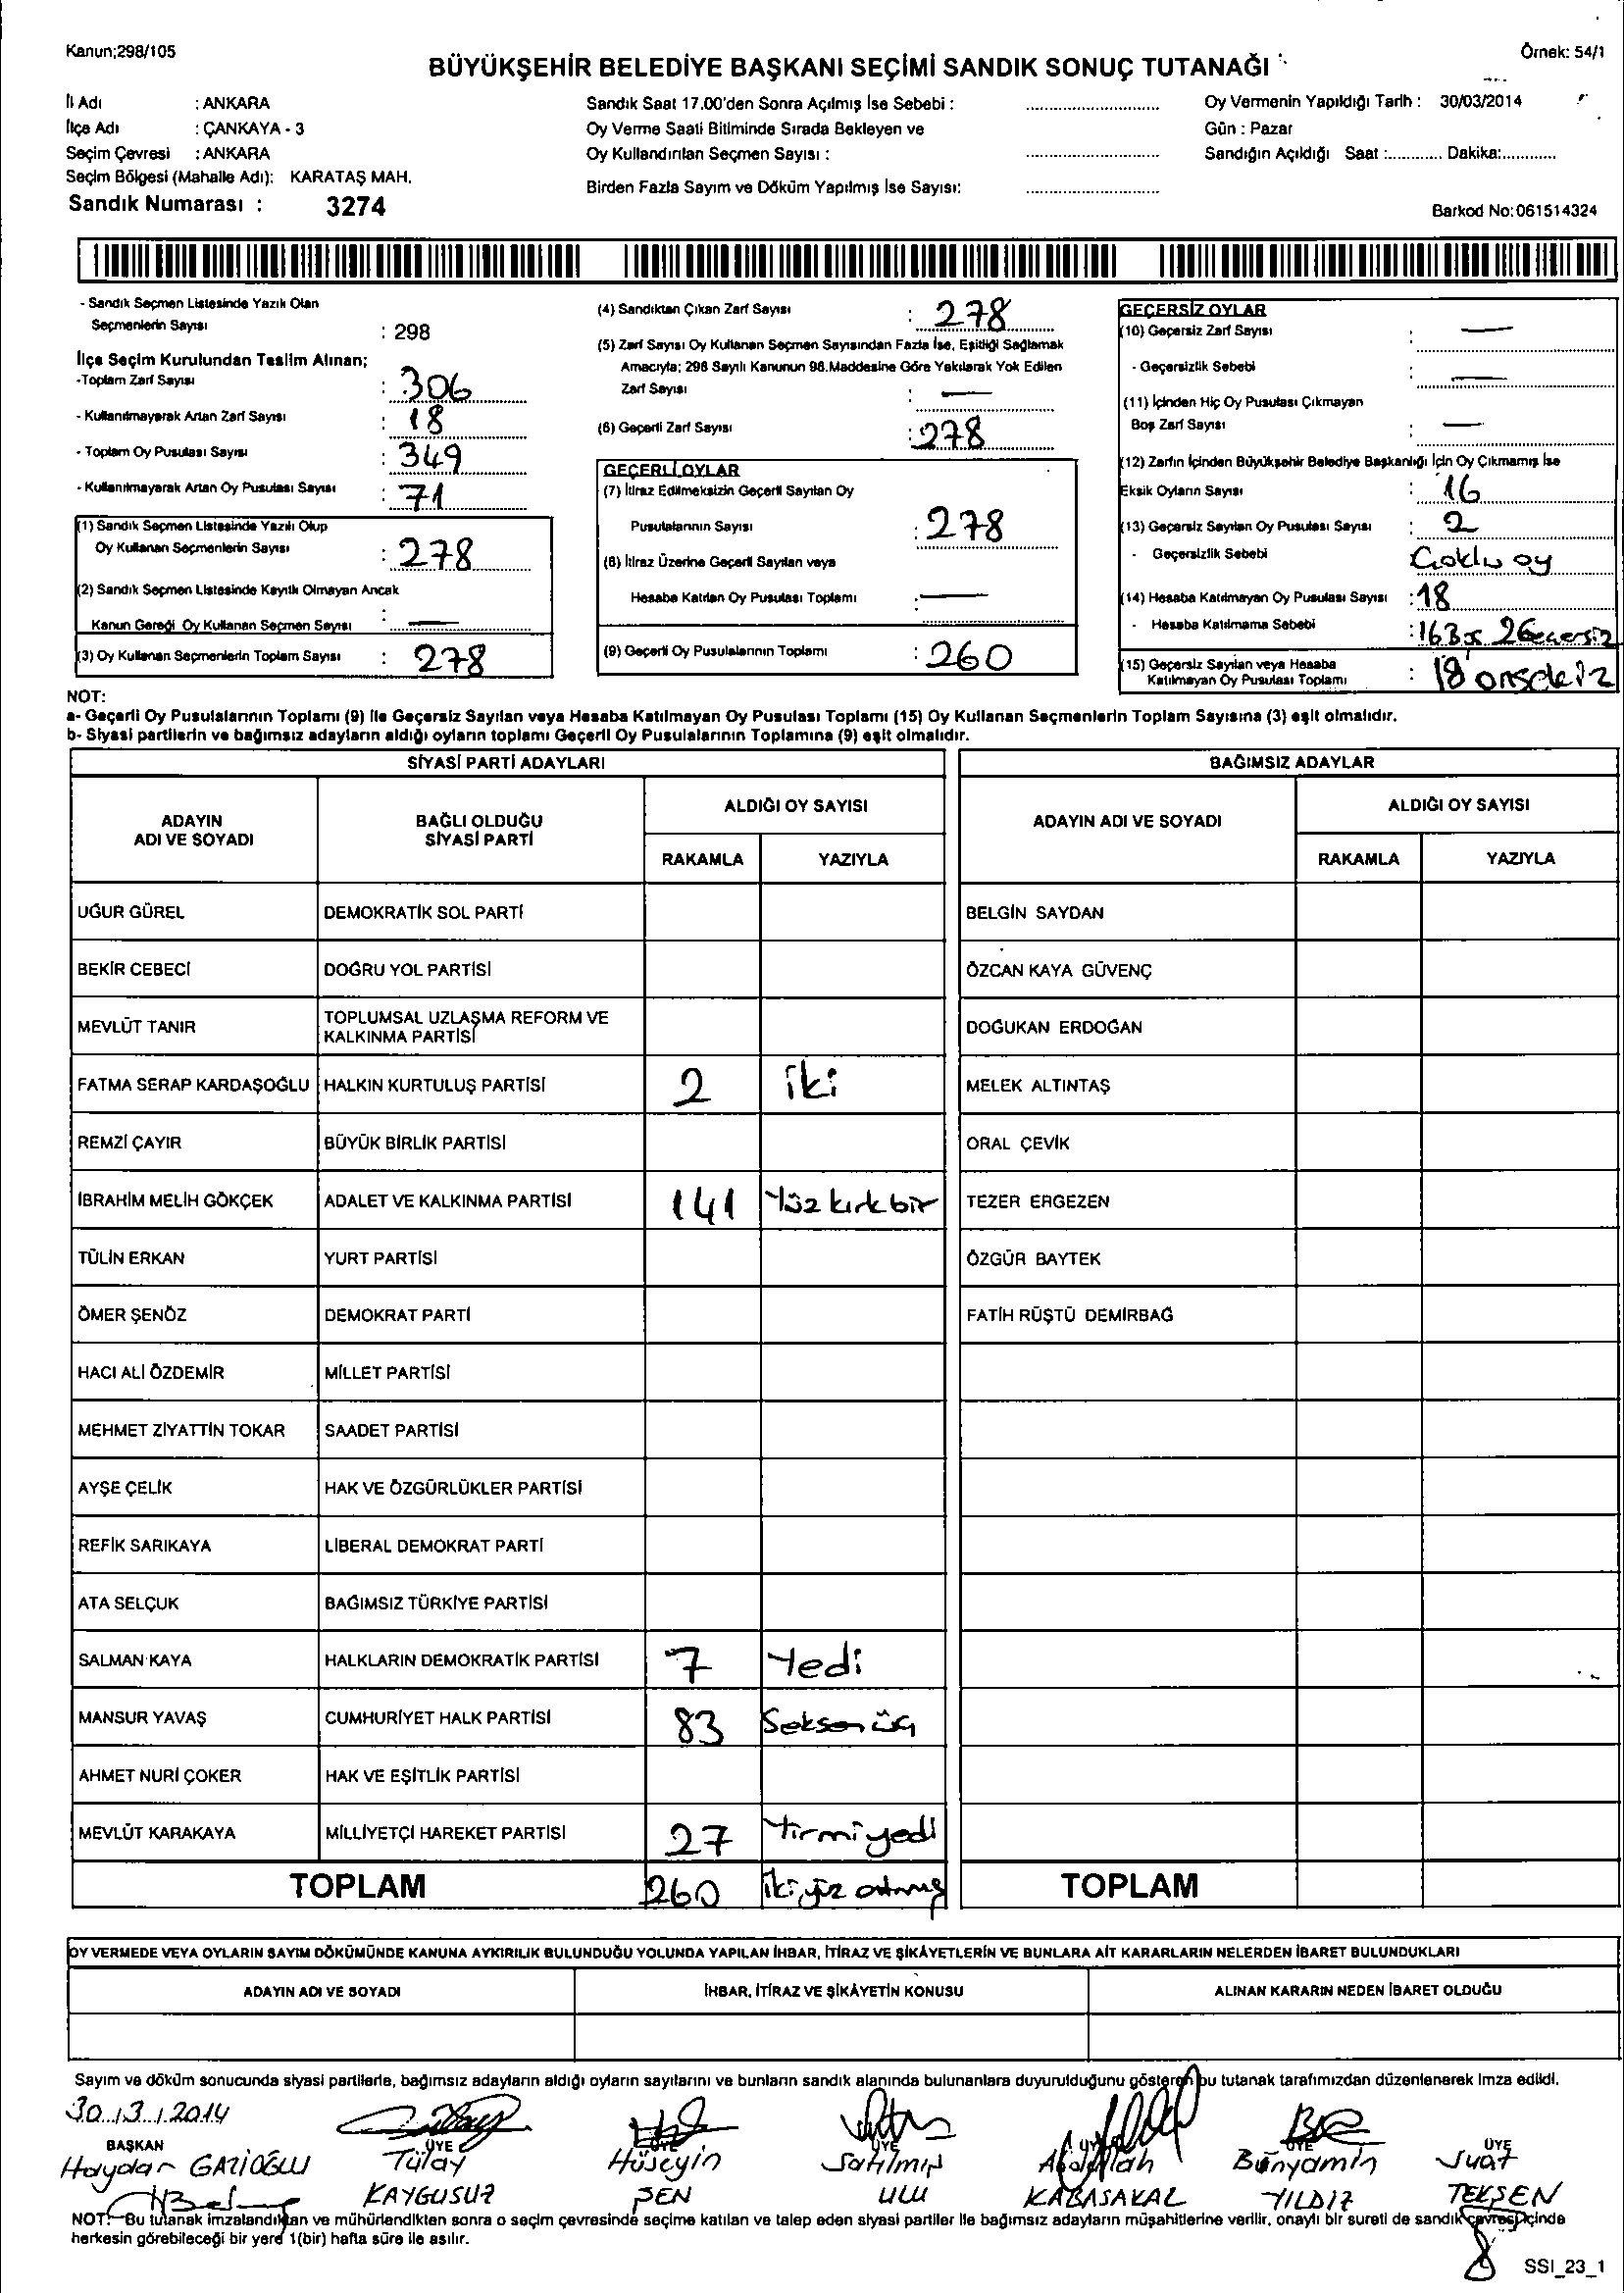 Kanun;298/105
Örnek: 54/1
BÜYÜKŞEHİR BELEDİYE BAŞKANI SEÇİMİ SANDIK SONUÇ TUTANAĞI
İl Adı : ANKARA
İlçe Adı : ÇANKAYA - 3
Seçim Çevresi : ANKARA
Seçim Bölgesi (Mahalle Adı): KARATAŞ MAH.
Sandık Numarası : 3274
Sandık Saat 17.00'den Sonra Açılmış İse Sebebi :
Oy Verme Saati Bitiminde Sırada Bekleyen ve
Oy Kullandırılan Seçmen Sayısı :
Birden Fazla Sayım ve Döküm Yapılmış İse Sayısı:
Oy Vermenin Yapıldığı Tarih : 30/03/2014
Gün : Pazar
Sandığın Açıldığı Saat :............ Dakika:............
Barkod No:061514324
- Sandık Seçmen Listesinde Yazılı Olan
Seçmenlerin Sayısı : 298
İlçe Seçim Kurulundan Teslim Alınan;
-Toplam Zarf Sayısı : 306
- Kullanılmayarak Artan Zarf Sayısı : 18
- Toplam Oy Pusulası Sayısı : 349
- Kullanılmayarak Artan Oy Pusulası Sayısı : 71
(1) Sandık Seçmen Listesinde Yazılı Olup
Oy Kullanan Seçmenlerin Sayısı : 278
(2) Sandık Seçmen Listesinde Kayıtlı Olmayan Ancak
Kanun Gereği Oy Kullanan Seçmen Sayısı : —
(3) Oy Kullanan Seçmenlerin Toplam Sayısı : 278
(4) Sandıktan Çıkan Zarf Sayısı : 278
(5) Zarf Sayısı Oy Kullanan Seçmen Sayısından Fazla İse, Eşitliği Sağlamak
Amacıyla; 298 Sayılı Kanunun 98.Maddesine Göre Yakılarak Yok Edilen
Zarf Sayısı : —
(6) Geçerli Zarf Sayısı : 278
GEÇERLİ OYLAR
(7) İtiraz Edilmeksizin Geçerli Sayılan Oy
Pusulalarının Sayısı : 278
(8) İtiraz Üzerine Geçerli Sayılan veya
Hesaba Katılan Oy Pusulası Toplamı : —
(9) Geçerli Oy Pusulalarının Toplamı : 260
GEÇERSİZ OYLAR
(10) Geçersiz Zarf Sayısı : —
- Geçersizlik Sebebi : —
(11) İçinden Hiç Oy Pusulası Çıkmayan
Boş Zarf Sayısı : —
(12) Zarfın İçinden Büyükşehir Belediye Başkanlığı İçin Oy Çıkmamış İse
Eksik Oyların Sayısı : 16
(13) Geçersiz Sayılan Oy Pusulası Sayısı : 2
- Geçersizlik Sebebi oy
(14) Hesaba Katılmayan Oy Pusulası Sayısı : 18
- Hesaba Katılmama Sebebi : 16 Boş 2 Geçersiz
(15) Geçersiz Sayılan veya Hesaba
Katılmayan Oy Pusulası Toplamı : 18 onsekiz
NOT:
a- Geçerli Oy Pusulalarının Toplamı (9) İle Geçersiz Sayılan veya Hesaba Katılmayan Oy Pusulası Toplamı (15) Oy Kullanan Seçmenlerin Toplam Sayısına (3) eşit olmalıdır.
b- Siyasi partilerin ve bağımsız adayların aldığı oyların toplamı Geçerli Oy Pusulalarının Toplamına (9) eşit olmalıdır.
SİYASİ PARTİ ADAYLARI
BAĞIMSIZ ADAYLAR
ADAYIN ADI VE SOYADI
BAĞLI OLDUĞU SİYASİ PARTİ
ALDIĞI OY SAYISI
RAKAMLA YAZIYLA
ADAYIN ADI VE SOYADI
ALDIĞI OY SAYISI
RAKAMLA YAZIYLA
UĞUR GÜREL DEMOKRATİK SOL PARTİ BELGİN SAYDAN
BEKİR CEBECİ DOĞRU YOL PARTİSİ ÖZCAN KAYA GÜVENÇ
MEVLÜT TANIR TOPLUMSAL UZLAŞMA REFORM VE KALKINMA PARTİSİ DOĞUKAN ERDOĞAN
FATMA SERAP KARDAŞOĞLU HALKIN KURTULUŞ PARTİSİ 2 iki MELEK ALTINTAŞ
REMZİ ÇAYIR BÜYÜK BİRLİK PARTİSİ ORAL ÇEVİK
İBRAHİM MELİH GÖKÇEK ADALET VE KALKINMA PARTİSİ 141 Yüz kırk bir TEZER ERGEZEN
TÜLİN ERKAN YURT PARTİSİ ÖZGÜR BAYTEK
ÖMER ŞENÖZ DEMOKRAT PARTİ FATİH RÜŞTÜ DEMİRBAĞ
HACI ALİ ÖZDEMİR MİLLET PARTİSİ
MEHMET ZİYATTİN TOKAR SAADET PARTİSİ
AYŞE ÇELİK HAK VE ÖZGÜRLÜKLER PARTİSİ
REFİK SARIKAYA LİBERAL DEMOKRAT PARTİ
ATA SELÇUK BAĞIMSIZ TÜRKİYE PARTİSİ
SALMAN KAYA HALKLARIN DEMOKRATİK PARTİSİ 7 Yedi
MANSUR YAVAŞ CUMHURİYET HALK PARTİSİ 83 Seksen üç
AHMET NURİ ÇOKER HAK VE EŞİTLİK PARTİSİ
MEVLÜT KARAKAYA MİLLİYETÇİ HAREKET PARTİSİ 27 Yirmi yedi
TOPLAM 260 iki yüz altmış TOPLAM
OY VERMEDE VEYA OYLARIN SAYIM DÖKÜMÜNDE KANUNA AYKIRILIK BULUNDUĞU YOLUNDA YAPILAN İHBAR, İTİRAZ VE ŞİKÂYETLERİN VE BUNLARA AİT KARARLARIN NELERDEN İBARET BULUNDUKLARI
ADAYIN ADI VE SOYADI İHBAR, İTİRAZ VE ŞİKÂYETİN KONUSU ALINAN KARARIN NEDEN İBARET OLDUĞU
Sayım ve döküm sonucunda siyasi partilerle, bağımsız adayların aldığı oyların sayılarını ve bunların sandık alanında bulunanlara duyurulduğunu gösteren bu tutanak tarafımızdan düzenlenerek imza edildi.
30/3/2014
BAŞKAN ÜYE ÜYE ÜYE ÜYE ÜYE ÜYE
Haydar GAZİOĞLU Tülay Hüseyin Satılmış Abdullah Bünyamin Suat
KAYGUSUZ ŞEN ULU KABASAKAL YILDIZ TEKŞEN
NOT: Bu tutanak imzalandıktan ve mühürlendikten sonra o seçim çevresinde seçime katılan ve talep eden siyasi partiler ile bağımsız adayların müşahitlerine verilir, onaylı bir sureti de sandık çevresi içinde
herkesin görebileceği bir yere 1(bir) hafta süre ile asılır.
SSI_23_1